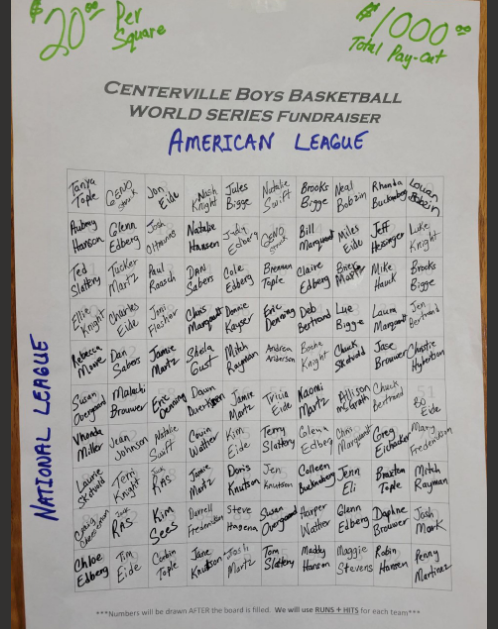 $20.00 Per Square
$1000.00 Total Pay-Out
CENTERVILLE BOYS BASKETBALL
WORLD SERIES FUNDRAISER
AMERICAN LEAGUE
NATIONAL LEAGUE
Tanya Tople GENO Jon Eide Nash Knight Jules Bigge Natalie Swift Brooks Bigge Neal Bobzin Rhonda Louan Bobzin
Hanson Glenn Edberg Josh Natalie Hansen Judy Edberg GENO Bill Marquardt Miles Eide Jeff Luke Knight
Ted Slattery Tucker Martz Paul Raasch DAN Sabers Cole Edberg Brennan Tople Claire Edberg Martz Mike Hauk Brooks Bigge
Ellie Knight Charles Eide Jimi Chris Marquardt Donnie Kayser Eric Denning Deb Bertrand Lue Bigge Laura Marquardt Jen Bertrand
Rebecca Dan Sabers Jamie Martz Shela Gust Mitch Rayman Andrea Anderson Knight Chuck Skotvold Jase Brouwer Christie
Susan Overgaard Malachi Brouwer Eric Denning Dawn Jamie Martz Tricia Eide Naomi Martz Allison McGrath Chuck Bertrand Bo Eide
Vhonda Miller Jean Johnson Natalie Swift Walther Kim Eide Terry Slattery Glenn Edberg Chris Marquardt Greg Fredericksen
Laurie Skotvold Terri Knight RAS Jamie Martz Doris Knutson Jen Knutson Colleen Jenn Eli Braxton Tople Mitch Rayman
Craig RAS Kim Sees Darrell Fredericksen Steve Hagena Susan Overgaard Harper Walther Glenn Edberg Daphne Brouwer Josh
Chloe Edberg Tim Eide Corbin Tople Jane Knutson Josh Martz Tom Slattery Maddy Hansen Maggie Stevens Robin Hansen Penny Martinez
***Numbers will be drawn AFTER the board is filled. We will use RUNS + HITS for each team***